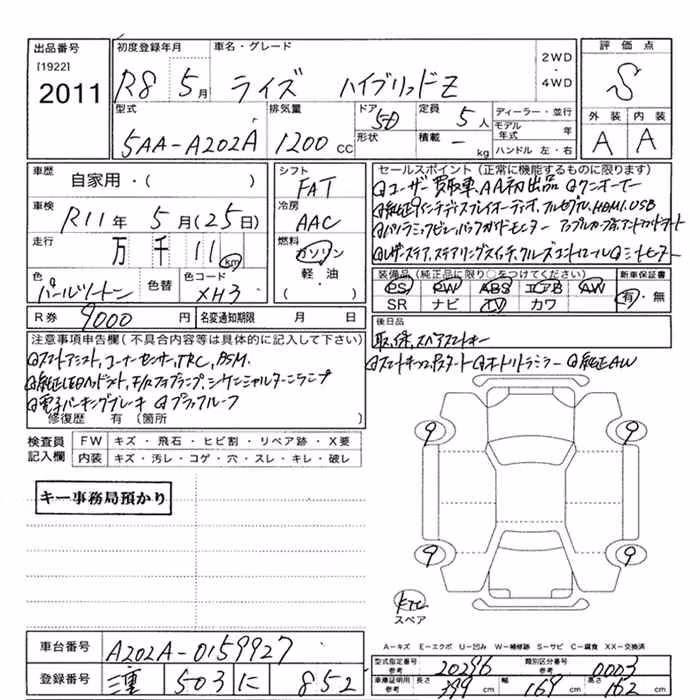 出品番号
[1922]
2011
初度登録年月
R8 5月
車名・グレード
ライズ ハイブリッドZ
2WD
・
4WD
評価点
S
外装 内装
A A
型式
5AA-A202A
排気量
1200 CC
ドア 5D
形状
定員 5人
積載 - kg
ディーラー・並行
モデル年式 年
ハンドル 左・右
車歴
自家用・( )
車検
R11年 5月(25日)
走行
万 千 11 km
色
パールツートン
色替
色コード
XH3
シフト
FAT
冷房
AAC
燃料
ガソリン
軽・油
( )
セールスポイント(正常に機能するものに限ります)
ユーザー買取車、AA初出品 ワンオーナー
純正9インチディスプレイオーディオ、フルセグTV、HDMI、USB
パノラミックビュー、バックガイドモニター アップルカープレイ、アンドロイドオート
レザーステア、ステアリングスイッチ、クルーズコントロール シートヒーター
装備品(純正品に限り○をつけてください) 新車保証書
PS PW ABS エアB AW
SR ナビ TV カワ
有・無
R券 9000 円 名変通知期限 月 日
後日品
取、保、スペアスマートキー
スマートキー、プッシュスタート オートリトラミラー 純正AW
注意事項申告欄(不具合内容等は具体的に記入して下さい)
スマートアシスト、コーナーセンサー、TRC、BSM、
純正LEDヘッドライト、F/Rフォグランプ、シーケンシャルターンランプ
電子パーキングブレーキ ブラックルーフ
修復歴 有 (箇所 )
検査員
記入欄
FW キズ・飛石・ヒビ割・リペア跡・X要
内装 キズ・汚レ・コゲ・穴・スレ・キレ・破レ
キー事務局預かり
9 9
9 9
スペア
A-キズ E-エクボ U-凹み W-補修跡 S-サビ C-腐食 XX-交換済
車台番号 A202A-0159927
登録番号 三重 503 に 852
型式指定番号 参考 20296 類別区分番号 参考 0003
車庫証明用 参考 長さ 399 cm 幅 169 cm 高さ 162 cm